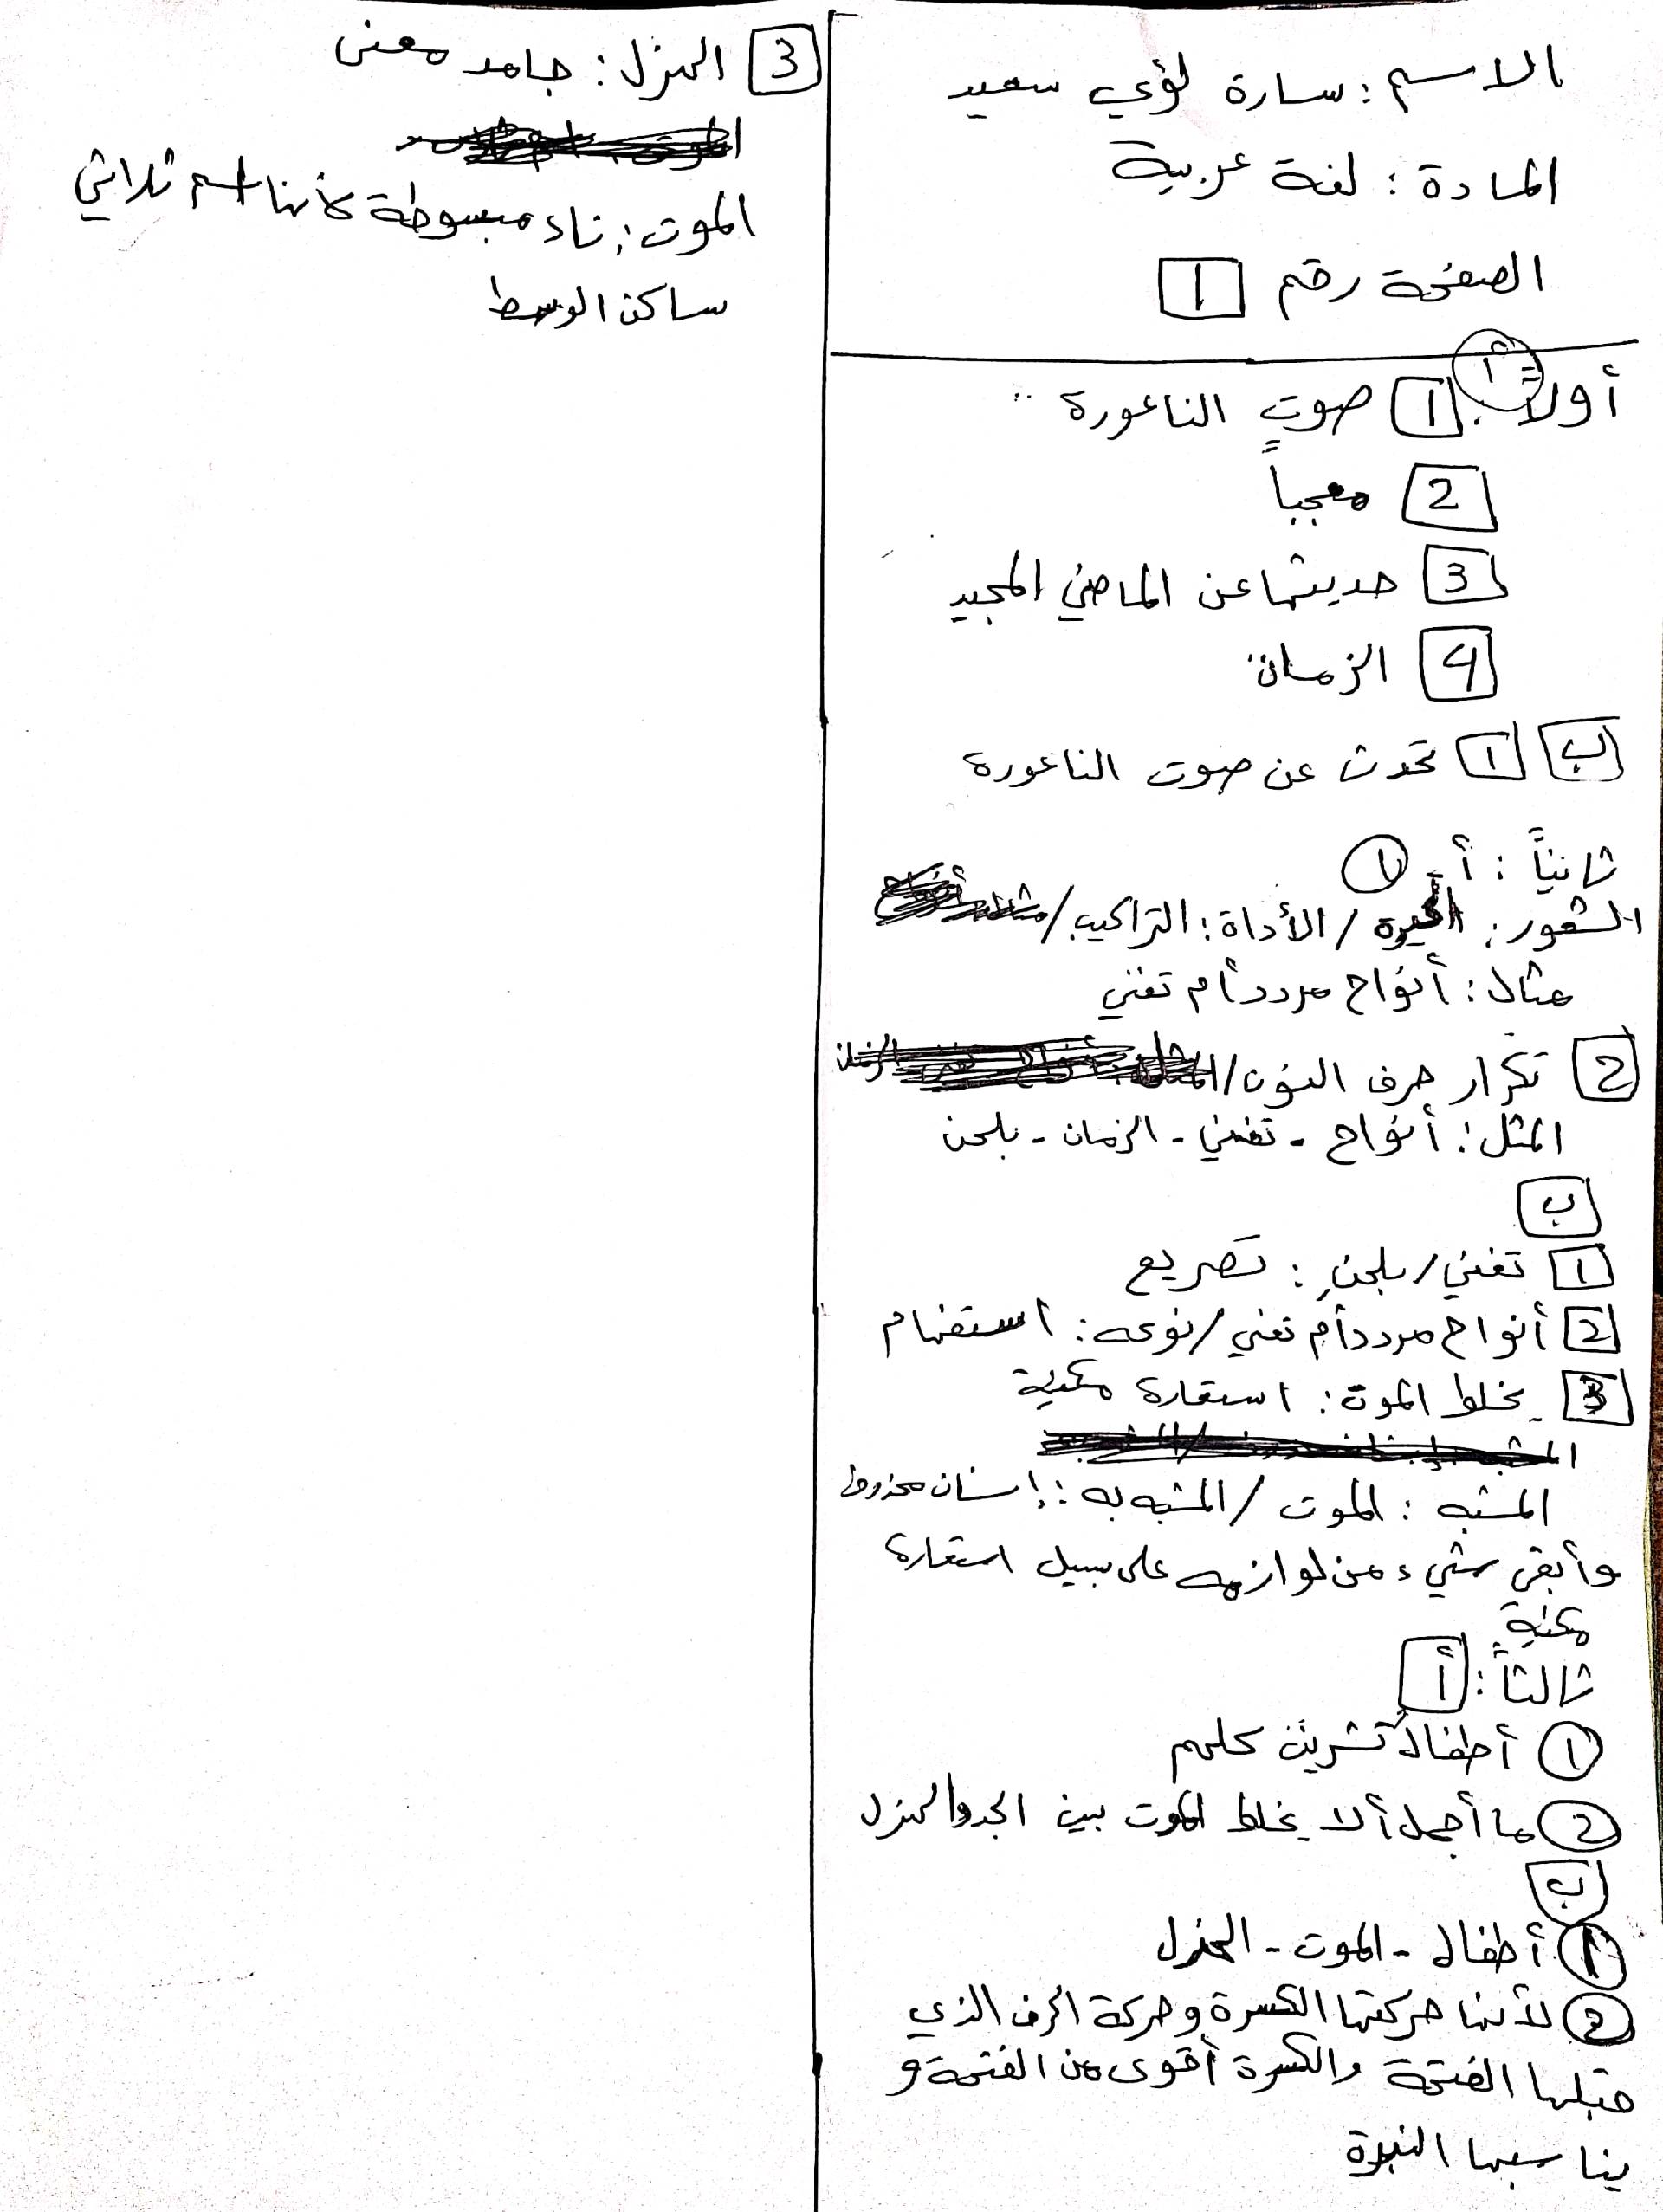 الاسم : سارة لؤي سعيد
المادة : لغة عربية
الصفحة رقم 1
أولاً : أ 1 صوت الناعورة
2 معجباً
3 حديثها عن الماضي المجيد
4 الزمان
ب 1 تحدث عن صوت الناعورة
ثانياً : أ - 1
الشعور : الحيرة / الأداة : التراكيب /
مثال : أنواح مردد أم تغني
2 تكرار حرف النون /
المثل : أنواح - تغني - الزمان - بلحن
ب
1 تغني / بلحنِ : تصريع
2 أنواح مردد أم تغني / نوعه : استفهام
3 يخلط الموت : استعارة مكنية
المشبه : الموت / المشبه به : إنسان محذوف
وأبقى شيء من لوازمه على سبيل استعارة
مكنية
ثالثاً : أ
1 أطفالُ تشرينَ كلهم
2 ما أجمل ألا يخلط الموت بين الجد والهزل
ب
1 أطفال - الموت - الهزل
2 لأنها حركتها الكسرة وحركة الحرف الذي
قبلها الفتحة والكسرة أقوى من الفتحة و
يناسبها النبرة
3 الهزل : جامد معنى
الموت : تاء مبسوطة لأنها اسم ثلاثي
ساكن الوسط